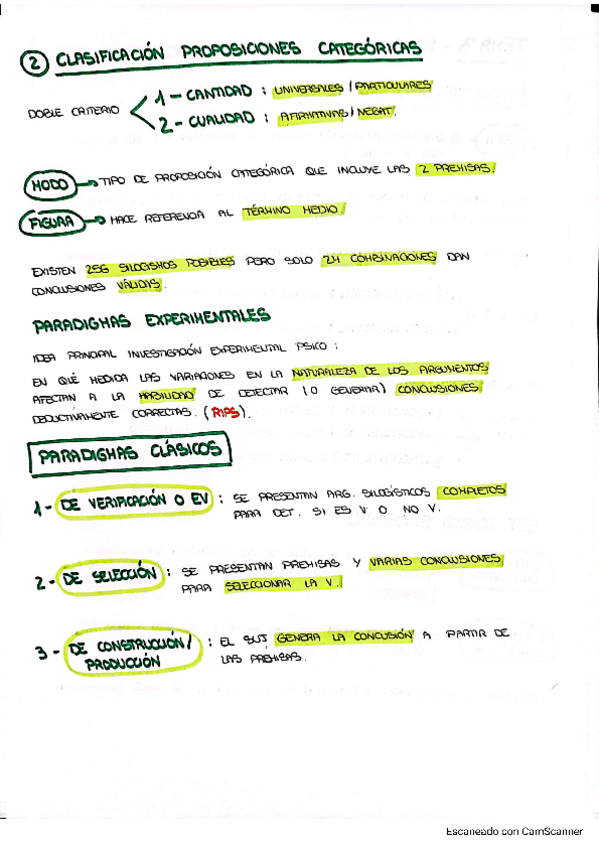 2 CLASIFICACIÓN PROPOSICIONES CATEGÓRICAS
1- CANTIDAD : UNIVERSALES / PARTICULARES
DOBLE CRITERIO
2- CUALIDAD : AFIRMATIVAS / NEGAT.
MODO → TIPO DE PROPOSICIÓN CATEGÓRICA QUE INCLUYE LAS 2 PREMISAS.
FIGURA → HACE REFERENCIA AL TÉRMINO MEDIO.
EXISTEN 256 SILOGISMOS POSIBLES PERO SOLO 24 COMBINACIONES DAN
CONCLUSIONES VÁLIDAS.
PARADIGMAS EXPERIMENTALES
IDEA PRINCIPAL INVESTIGACIÓN EXPERIMENTAL PSICO :
EN QUÉ MEDIDA LAS VARIACIONES EN LA NATURALEZA DE LOS ARGUMENTOS
AFECTAN A LA HABILIDAD DE DETECTAR (O GENERAR) CONCLUSIONES
DEDUCTIVAMENTE CORRECTAS. (RIPS).
PARADIGMAS CLÁSICOS
1- DE VERIFICACIÓN O EV : SE PRESENTAN ARG. SILOGÍSTICOS COMPLETOS
PARA DET. SI ES V O NO V.
2- DE SELECCIÓN : SE PRESENTAN PREMISAS Y VARIAS CONCLUSIONES
PARA SELECCIONAR LA V.
3- DE CONSTRUCCIÓN/ : EL SUJ GENERA LA CONCLUSIÓN A PARTIR DE
PRODUCCIÓN LAS PREMISAS.
Escaneado con CamScanner